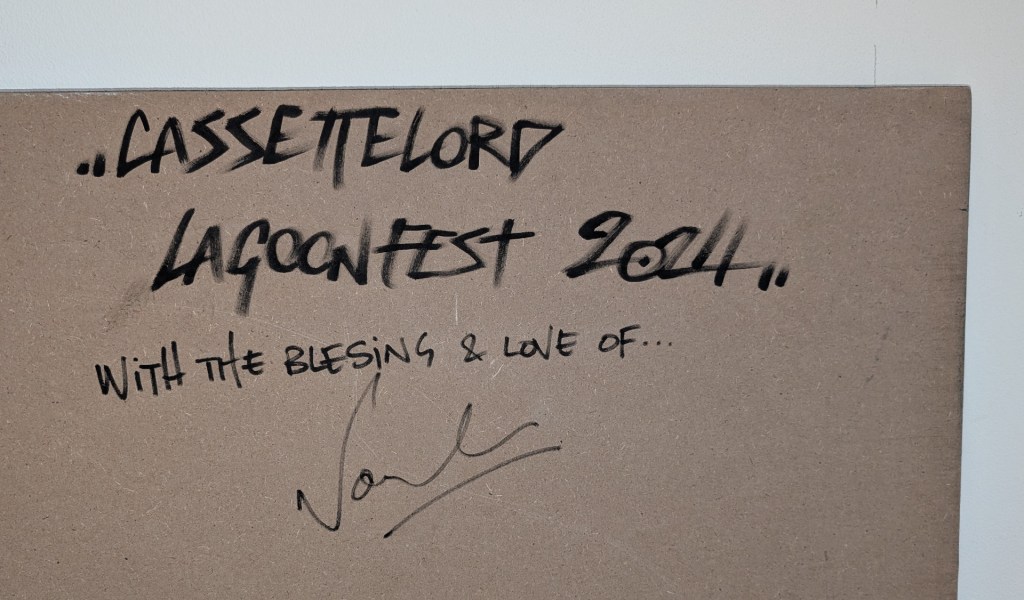 „CASSETTELORD
LAGOONFEST 2024„
WITH THE BLESING & LOVE OF...